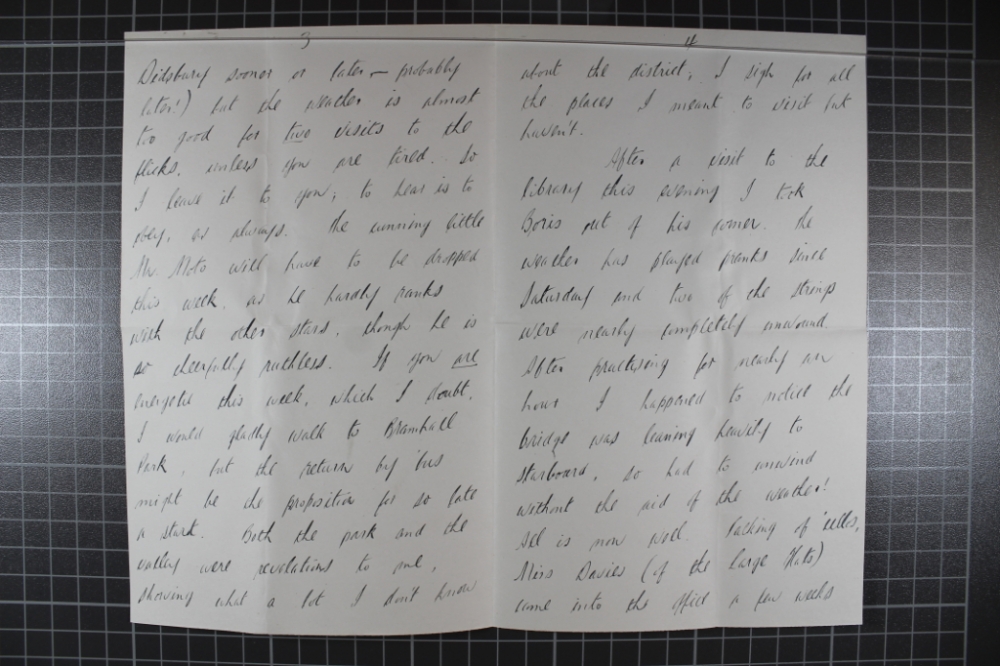 3
Didsbury sooner or later — probably
later!) but the weather is almost
too good for two visits to the
flicks, unless you are tired. So
I leave it to you; to hear is to
obey, as always. The cunning little
Mr. Moto will have to be dropped
this week, as he hardly ranks
with the other stars, though he is
so cheerfully ruthless. If you are
energetic this week, which I doubt,
I would gladly walk to Bramhall
Park, but the return by 'bus
might be the proposition for so late
a start. Both the park and the
valley were revelations to me,
showing what a lot I don't know
4
about the district; I sigh for all
the places I meant to visit but
haven't.
After a visit to the
library this evening I took
Boris out of his corner. The
weather has played pranks since
Saturday and two of the strings
were nearly completely unwound.
After practising for nearly an
hour I happened to notice the
bridge was leaning heavily to
starboard, so had to unwind
without the aid of the weather!
All is now well. Talking of 'cellos,
Miss Davies (of the Large Hats)
came into the office a few weeks